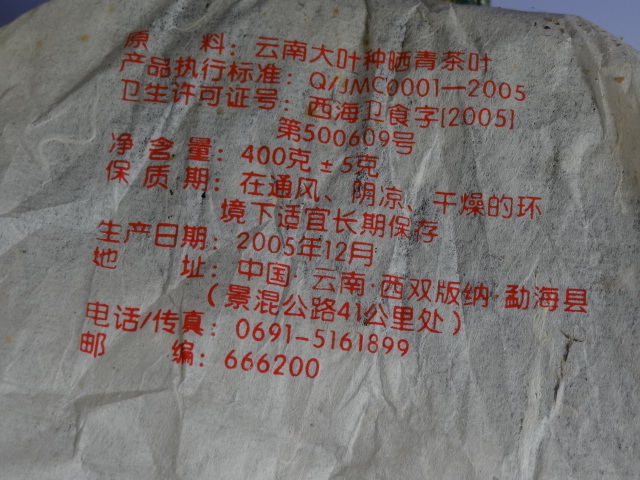 原 料：云南大叶种晒青茶叶
产品执行标准：Q/JMC0001—2005
卫生许可证号：西海卫食字[2005]
第500609号
净含量：400克±5克
保质期：在通风、阴凉、干燥的环
境下适宜长期保存
生产日期：2005年12月
地 址：中国·云南·西双版纳·勐海县
（景混公路41公里处）
电话/传真：0691-5161899
邮 编：666200